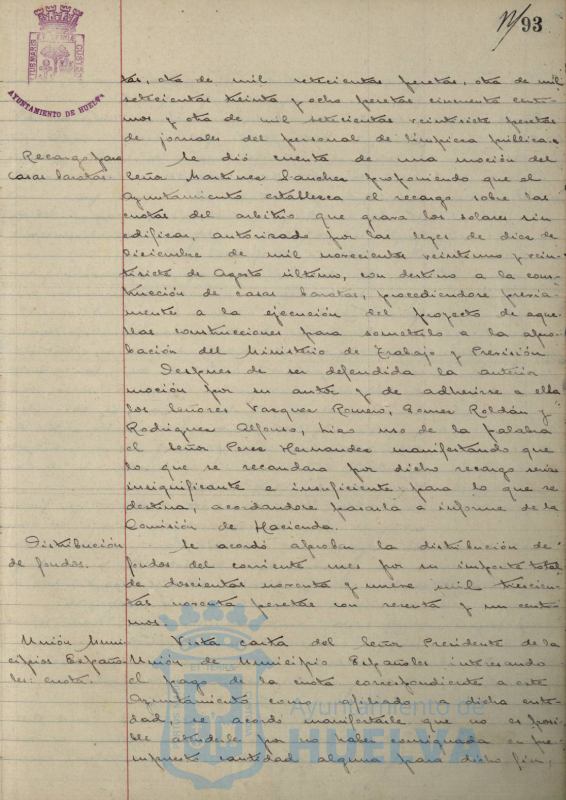 93
AYUNTAMIENTO DE HUELVA
tas, otra de mil setecientas pesetas, otra de mil
setecientas treinta y ocho pesetas cincuenta centi-
mos y otra de mil setecientas veintisiete pesetas
de jornales del personal de limpieza pública.
Recargo para
casas baratas.
Se dió cuenta de una moción del
Señor Martinez Sanchez proponiendo que el
Ayuntamiento establezca el recargo sobre las
cuotas del arbitrio que grava los solares sin
edificar, autorizado por las leyes de diez de
Diciembre de mil novecientos veintiuno y vein-
tisiete de Agosto último, con destino a la cons-
trucción de casas baratas, procediendose previa-
mente a la ejecución del proyecto de aque-
llas construcciones para someterlo a la apro-
bación del Ministerio de Trabajo y Previsión
Despues de ser defendida la anterior
moción por su autor y de adherirse a ella
los Señores Vazquez Romero, Gomez Roldán y
Rodriguez Alfonso, hizo uso de la palabra
el Señor Perez Hernandez manifestando que
lo que se recaudara por dicho recargo seria
insignificante e insuficiente para lo que se
destina, acordandose pasarla a informe de la
Comisión de Hacienda.
Distribución
de fondos.
Se acordó aprobar la distribución de
fondos del corriente mes por su importe total
de doscientas noventa y nueve mil trescien-
tas noventa pesetas con sesenta y un centi-
mos.
Unión Muni-
cipios Españo-
les: cuota.
Vista carta del Señor Presidente de la
Unión de Municipios Españoles interesando
el pago de la cuota correspondiente a este
Ayuntamiento como afiliado a dicha enti-
dad, se acordó manifestarle que no es posi-
ble atenderle por no haber consignada en pre-
supuesto cantidad alguna para dicho fin,
Ayuntamiento de
HUELVA